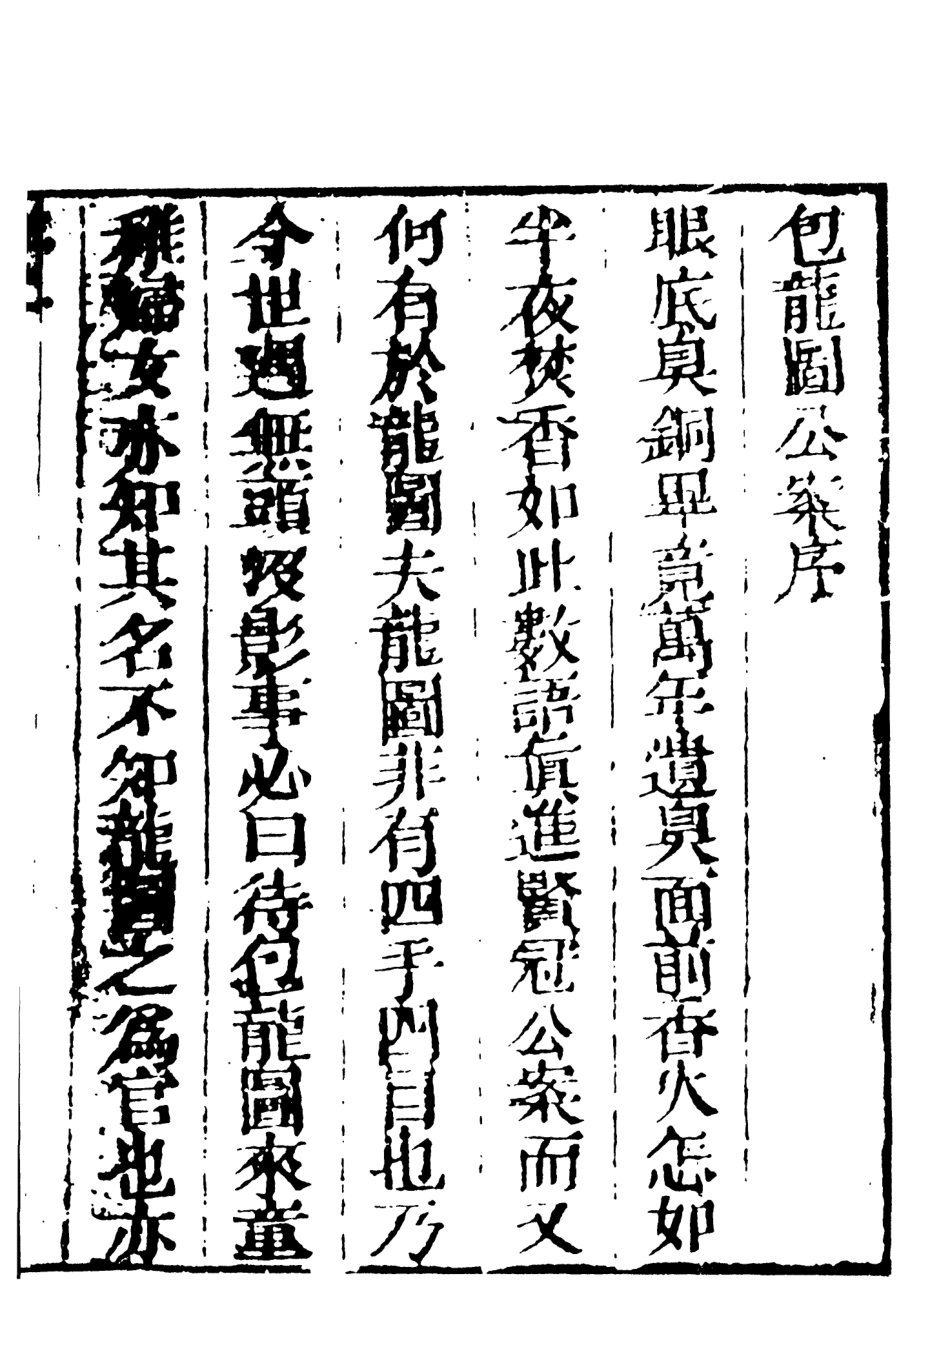 包龍圖公案序
眼底真銅畢竟萬年遺臭面前香火怎如
半夜焚香如此數語真進賢冠公案而又
何有於龍圖夫龍圖非有四手四目也乃
今世遇無頭沒影事必曰待包龍圖來童
稚婦女亦知其名不知龍圖之為官也亦